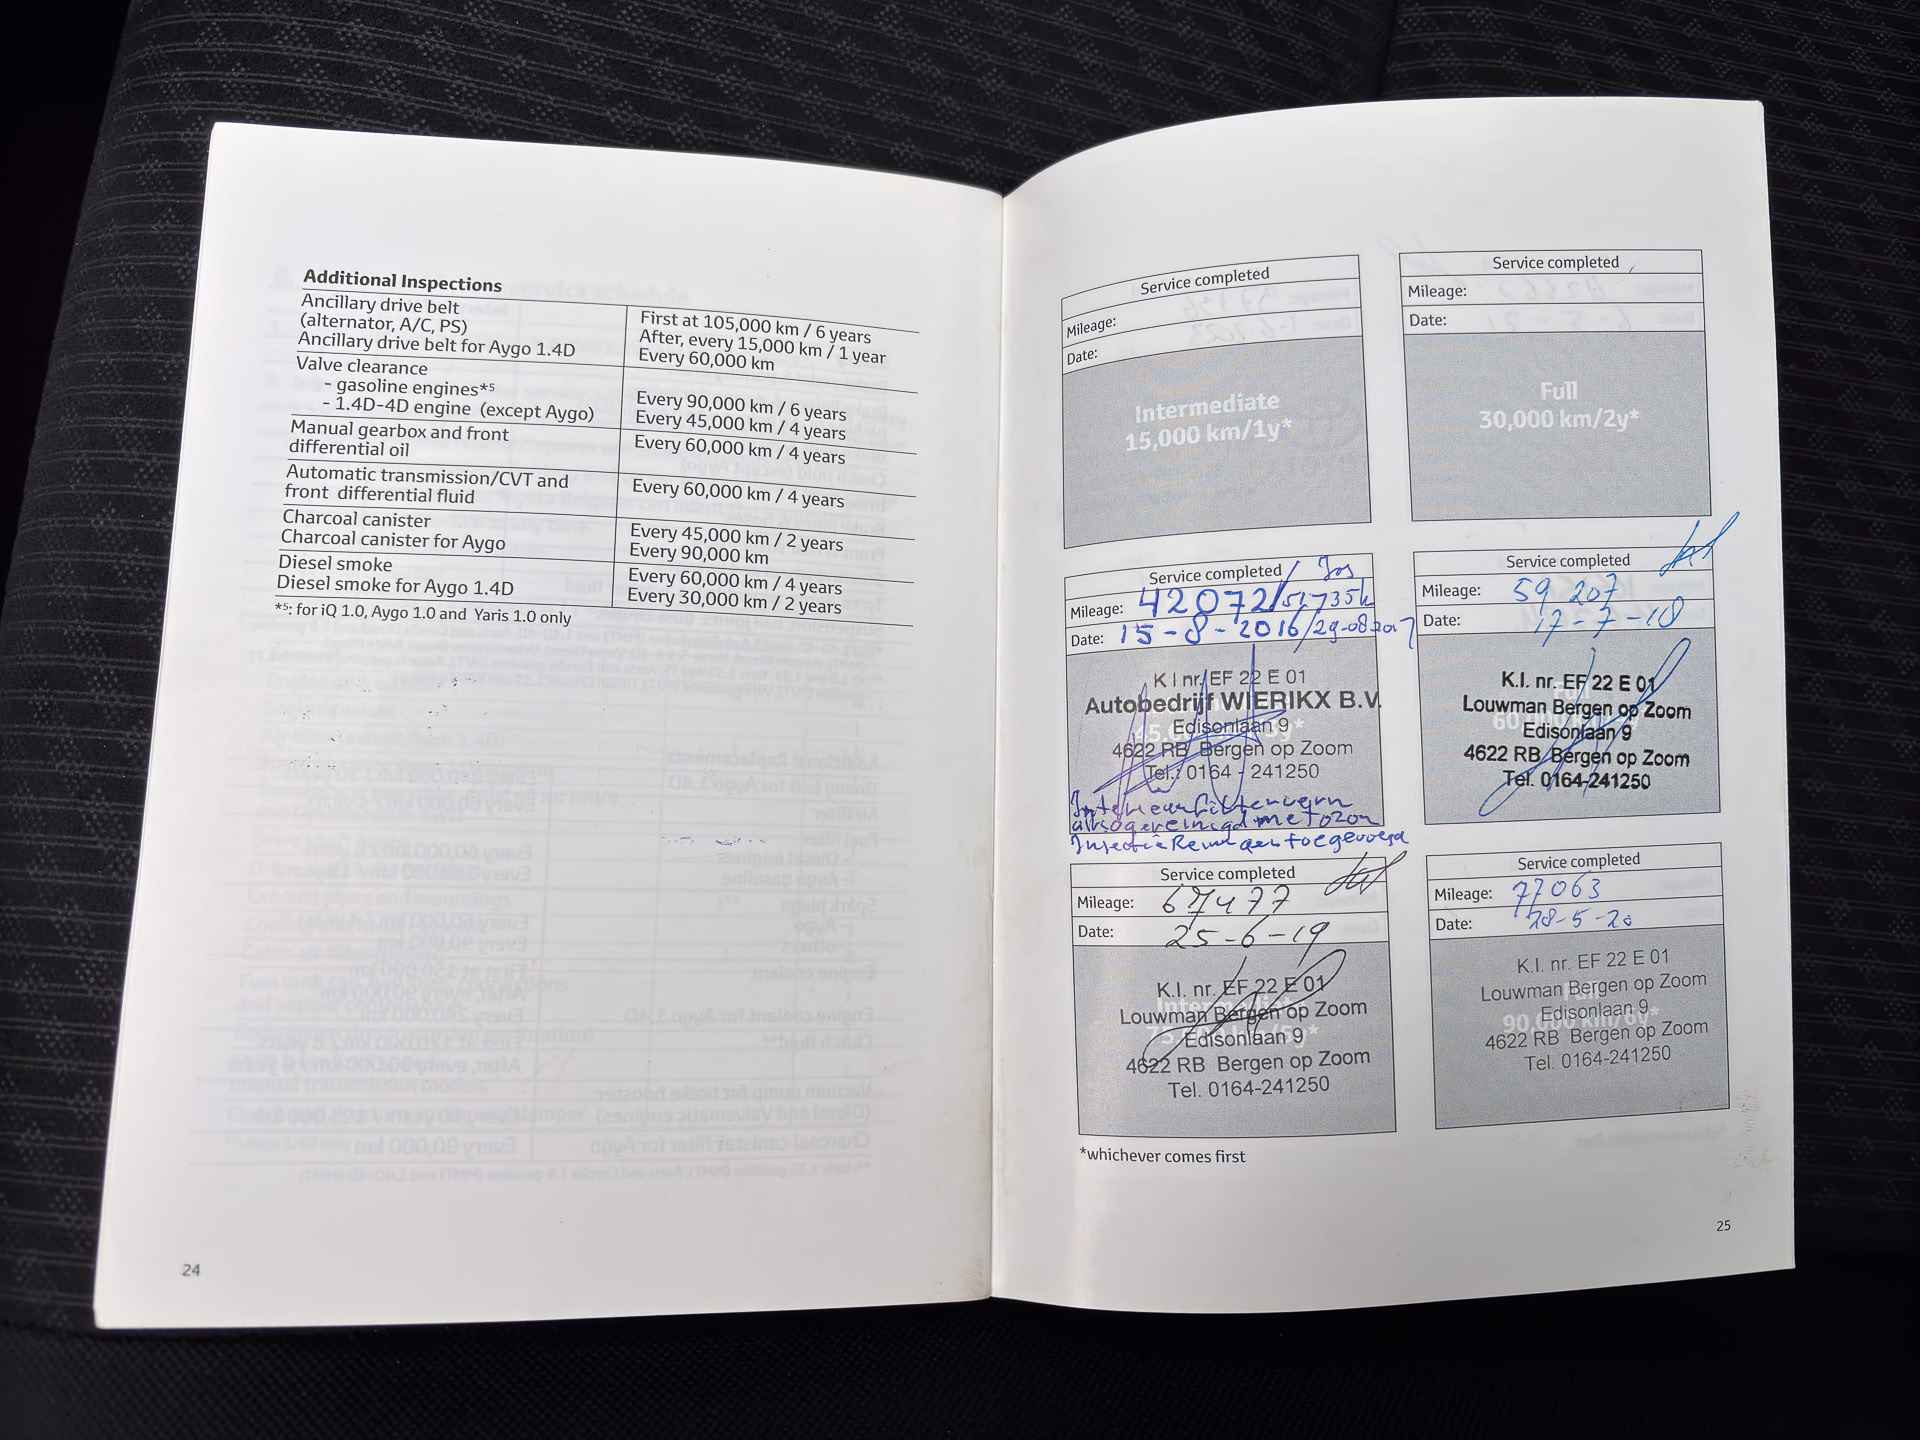 Additional Inspections
Ancillary drive belt
(alternator, A/C, PS)
Ancillary drive belt for Aygo 1.4D
First at 105,000 km / 6 years
After, every 15,000 km / 1 year
Every 60,000 km
Valve clearance
- gasoline engines*5
- 1.4D-4D engine (except Aygo)
Every 90,000 km / 6 years
Every 45,000 km / 4 years
Manual gearbox and front
differential oil
Every 60,000 km / 4 years
Automatic transmission/CVT and
front differential fluid
Every 60,000 km / 4 years
Charcoal canister
Charcoal canister for Aygo
Every 45,000 km / 2 years
Every 90,000 km
Diesel smoke
Diesel smoke for Aygo 1.4D
Every 60,000 km / 4 years
Every 30,000 km / 2 years
*5: for iQ 1.0, Aygo 1.0 and Yaris 1.0 only
24
Service completed
Mileage:
Date:
Intermediate
15,000 km/1y*
Service completed
Mileage:
Date:
Full
30,000 km/2y*
Service completed / Jos
Mileage: 42072/51735k
Date: 15-8-2016/29-08-2017
K I nr. EF 22 E 01
Autobedrijf WIERIKX B.V.
Edisonlaan 9
4622 RB Bergen op Zoom
Tel.: 0164 - 241250
Interieurfilter vern
gereinigd met ozon
toegevoegd
Service completed
Mileage: 59 207
Date: 17-7-18
K.I. nr. EF 22 E 01
Louwman Bergen op Zoom
Edisonlaan 9
4622 RB Bergen op Zoom
Tel. 0164-241250
Service completed
Mileage: 67477
Date: 25-6-19
K.I. nr. EF 22 E 01
Louwman Bergen op Zoom
Edisonlaan 9
4622 RB Bergen op Zoom
Tel. 0164-241250
Service completed
Mileage: 77063
Date: 28-5-20
K.I. nr. EF 22 E 01
Louwman Bergen op Zoom
Edisonlaan 9
90,000 km/6y*
4622 RB Bergen op Zoom
Tel. 0164-241250
*whichever comes first
25